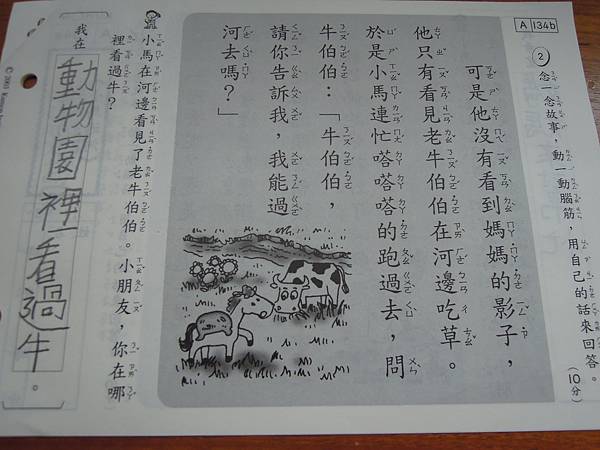 A 134b
② 念一念故事，動一動腦筋，用自己的話來回答。(10分)
可是他沒有看到媽媽的影子，
他只有看見老牛伯伯在河邊吃草。
於是小馬連忙嗒嗒嗒的跑過去，問
牛伯伯：「牛伯伯，
請你告訴我，我能過
河去嗎？」
小馬在河邊看見了老牛伯伯。小朋友，你在哪
裡看過牛？
我在
動物園裡看過牛。
© 2003 Kumon